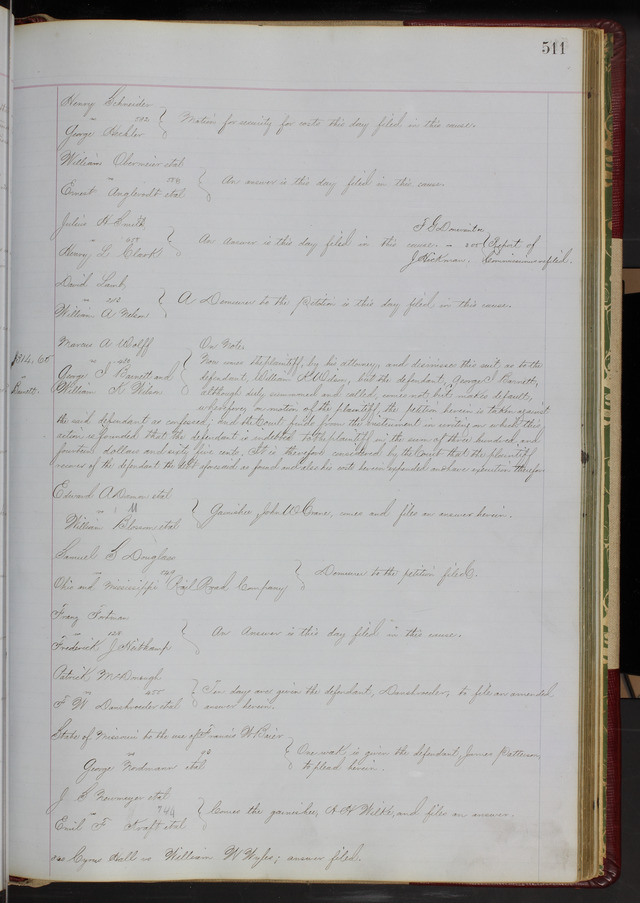 511
Henry Schneider
" 292 Motion for security for costs this day filed in this cause.
George Bechler
William Obermeier et al
" 336 An answer is this day filed in this cause.
Ernest et al
Julius H Smith
" An Answer is this day filed in this cause.
Henry L. Clark
" 800 Report of
J Hickman. Commissioners filed.
David Lamb,
" A Demurrer to the Petition is this day filed in this cause.
William A Nelson
Marcus A Wolff On Note.
$314.65 " Now comes the plaintiff, by his attorney, and dismisses this suit, as to the
George I Barnett and defendant, William K Wilson, but the defendant, George I Barnett,
" Barnett. William K Wilson although duly summoned and called, comes not, but makes default;
wherefore, on motion of the plaintiff, the petition herein is taken against
the said defendant as confessed; and the Court finds from the instrument in writing on which this
action is founded that the defendant is indebted to the plaintiff in the sum of three hundred and
fourteen dollars and sixty five cents, It is therefore considered by the Court that the plaintiff
recover of the defendant the debt aforesaid as found and also his costs herein expended and have execution therefor
Edward A Damon et al
" 11 Garnishee John W Crane, comes and files an answer herein.
William Blossom et al
Samuel S Douglass
" 749 Demurrer to the petition filed.
Ohio and Mississippi Rail Road Company
Franz Fortman
" 128 An Answer is this day filed in this cause.
Frederick J Heitkamp
Patrick McDonough
" 255 Ten days are given the defendant, Danshroeder, to file an amended
F W Danshroeder et al answer herein.
State of Missouri to the use of Francis W Beier
" 98 One week is given the defendant, James Patterson,
George Nordmann et al to plead herein.
J. S Newmeyer et al
" 744 Comes the garnishee, A H Wilke, and files an answer.
Emil F Kraft et al
Cyrus Hall vs William W Wyles; answer filed.